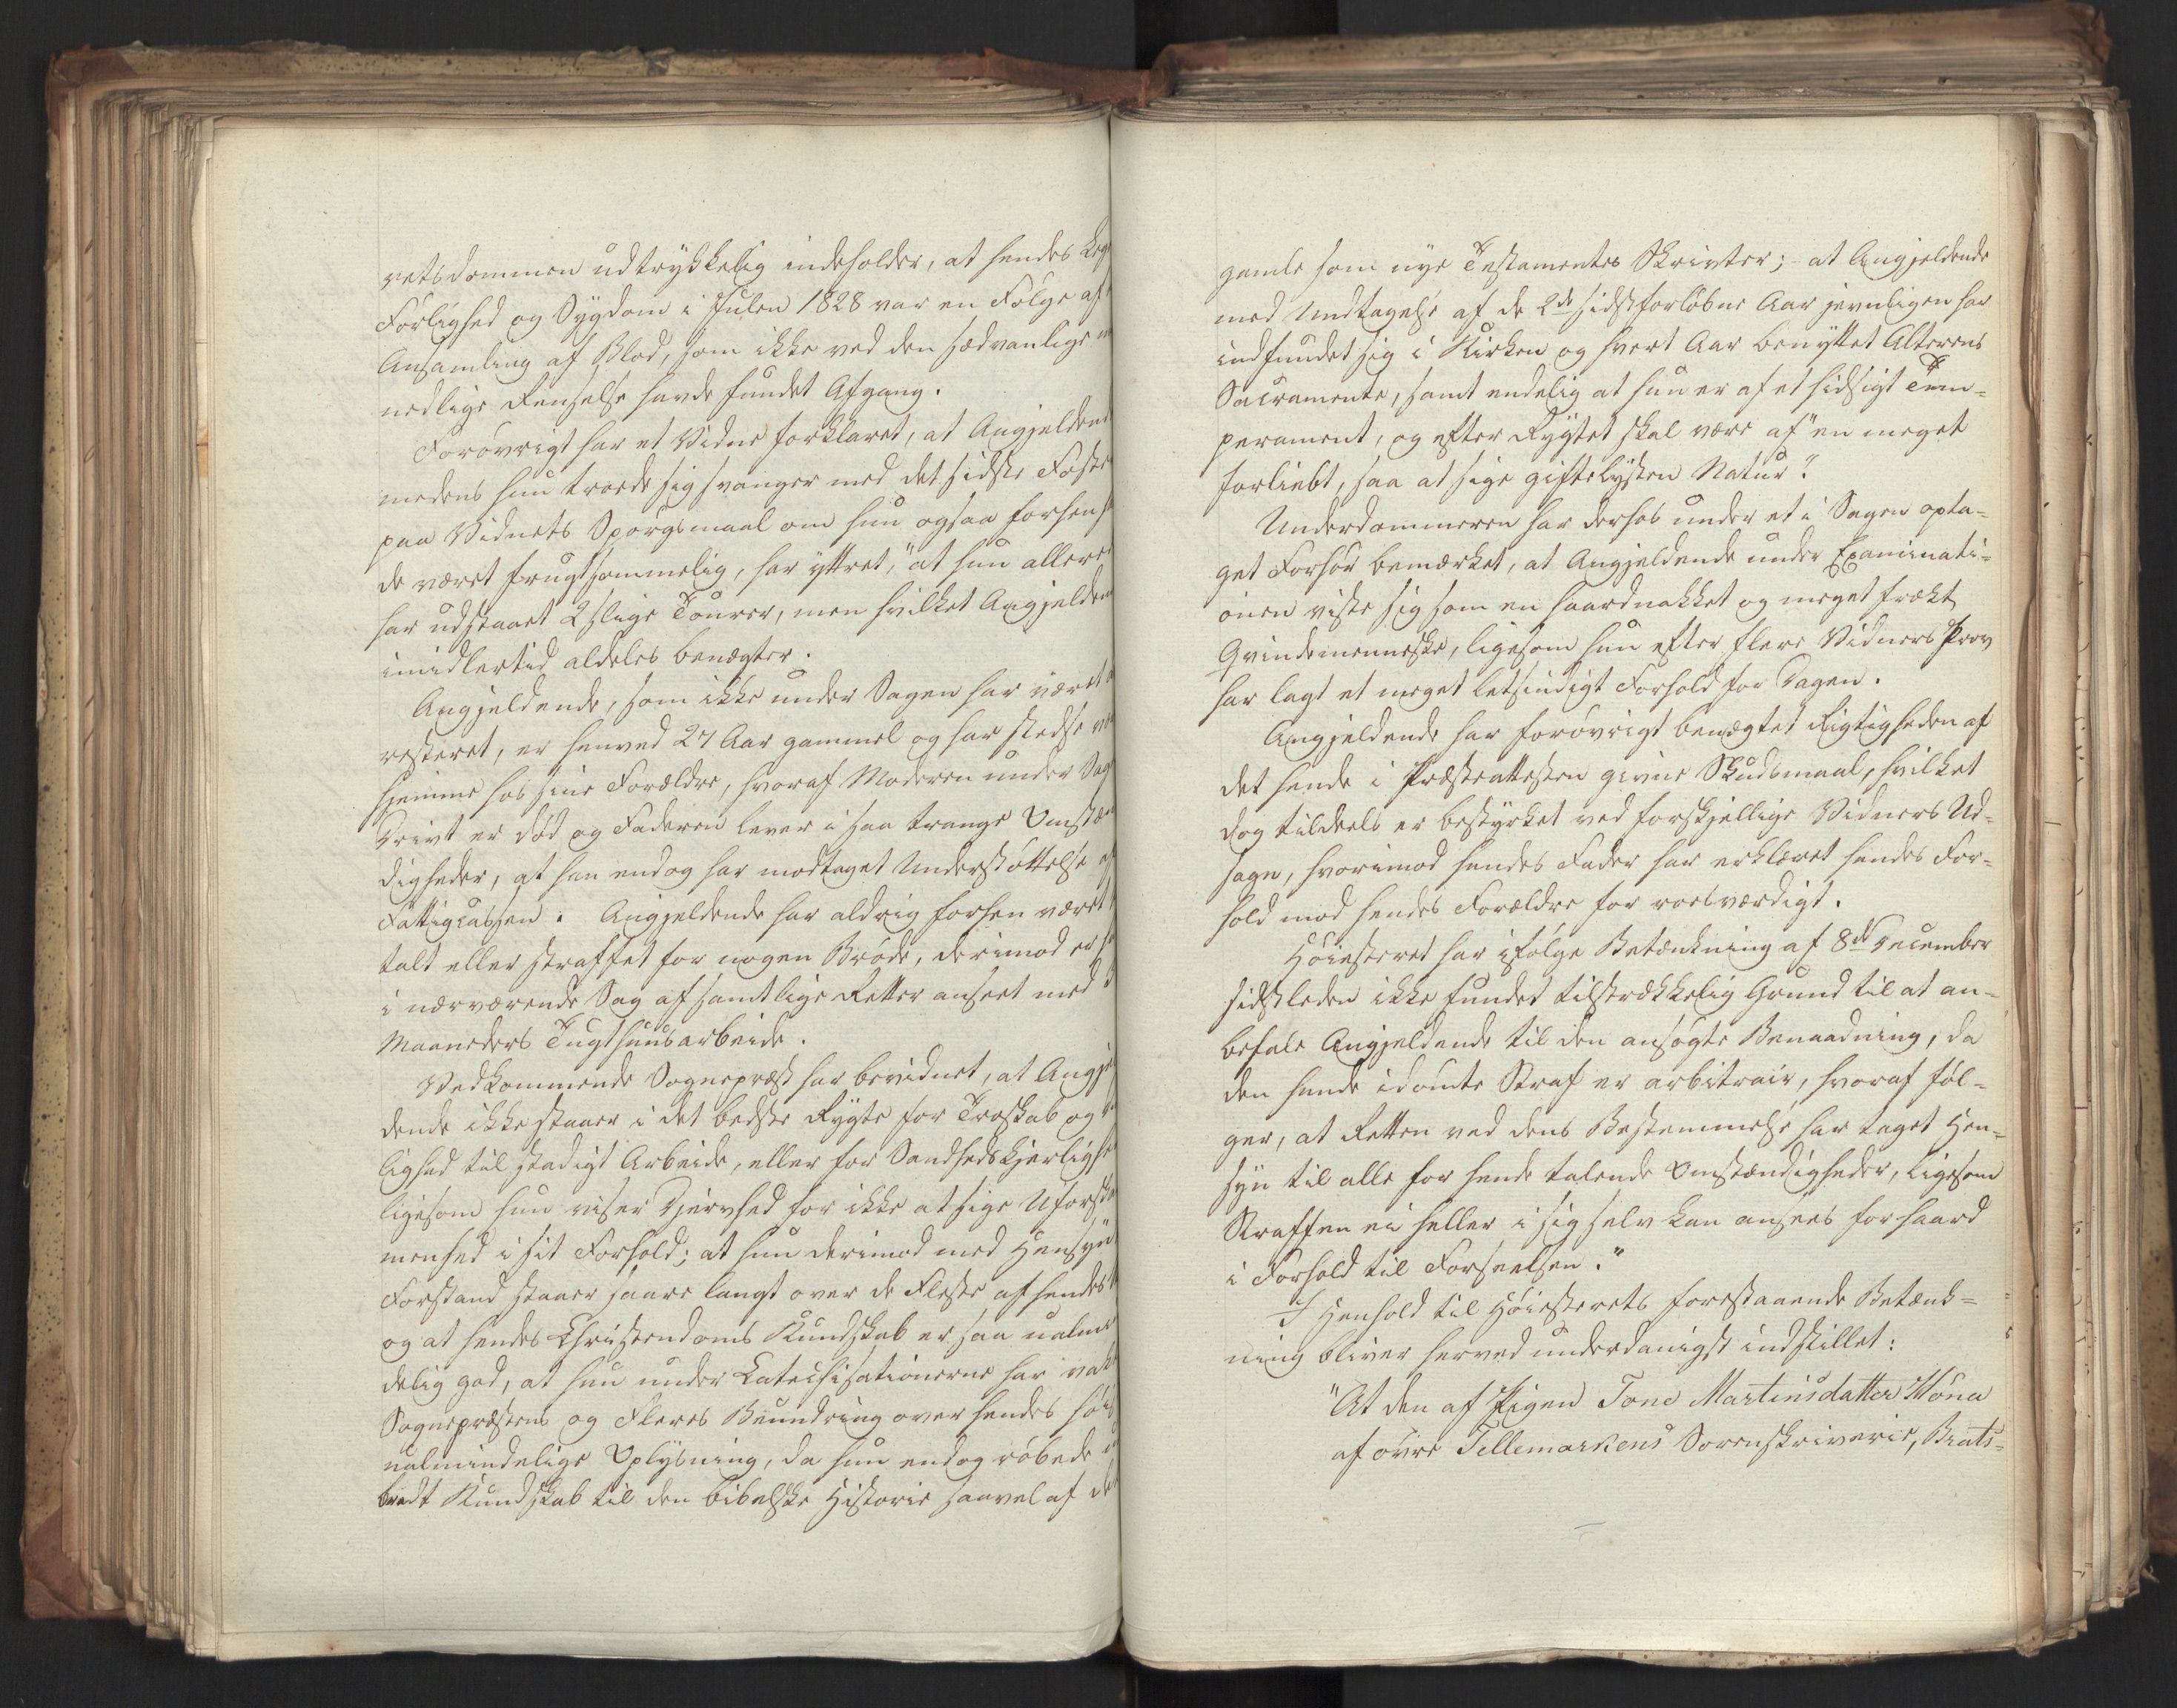 retsdommen udtrykkelig indeholder, at hendes Leg
Førlighed og Sygdom i Julen 1828 var en Følge af
Ansamling af Blod, som ikke ved den sædvanlige
nedlige Renselse havde fundet Afgang.
Forøvrigt har et Vidne forklaret, at Angjeldend
medens hun troede sig svanger med det sidste Foste
paa Vidnets Spørgsmaal om hun ogsaa forhen h
de været frugtsommelig, har yttret, "at hun allere
har udstaaet 2 slige Tourer, men hvilket Angjelden
imidlertid aldeles benægter.
Angjeldende, som ikke under Sagen har været a
resteret, er henved 27 Aar gammel og har stedse væ
hjemme hos sine Forældre, hvoraf Moderen under Sag
Drivt er død og Faderen lever i saa trange Omstæn
digheder, at han endog har modtaget Understøttelse af
Fattigcassen. Angjeldende har aldrig forhen været
talt eller straffet for nogen Brøde, derimod er h
i nærværende Sag af samtlige Retter anseet med
Maaneders Tugthuusarbeide.
Vedkommende Sognepræst har bevidnet, at Angjel
dende ikke staaer i det bedste Rygte for Troskab og
lighed til stadigt Arbeide, eller for Sandhedskjerlighe
ligesom hun viser Djervhed for ikke at sige Uforska
menhed i sit Forhold; at hun derimod med Hensyn
Forstand staaer saare langt over de Fleste af hendes
og at hendes Christendoms Kundskab er saa ualmi
delig god, at hun under Catechisationerne har vakt
Sognepræstens og Fleres Beundring over hendes høist
ualmindelige Oplysning, da hun endog røbede u
bredt Kundskab til den bibelske Historie saavel af det
gamle som nye Testamentes Skrivter; at Angjeldende
med Undtagelse af de 2de sidstforløbne Aar jevnligen har
indfundet sig i Kirken og hvert Aar benyttet Alterens
Sacramente, samt endelig at hun er af et hidsigt Tem-
perament, og efter Rygtet skal være af "en meget
forliebt, saa at sige giftelysten Natur".
Underdommeren har derhos under et i Sagen opta-
get Forhør bemærket, at Angjeldende under Examinati-
onen viste sig som en haardnakket og meget frækt
Qvindemenneske, ligesom hun efter flere Vidners Prov
har lagt et meget letsindigt Forhold for Dagen.
Angjeldende har forøvrigt benægtet Rigtigheden af
det hende i Præsteattesten givne Skudsmaal, hvilket
dog tildeels er bestyrket ved forskjellige Vidners Ud-
sagn, hvorimod hendes Fader har erklæret hendes For-
hold mod hendes Forældre for roesværdigt.
Høiesteret har ifølge Betænkning af 8de December
sidstleden ikke fundet tilstrækkelig Grund til at an-
befale Angjeldende til den ansøgte Benaadning, da
den hende idømte Straf er arbitrair, hvoraf føl-
ger, at Retten ved dens Bestemmelse har taget Hen-
syn til alle for hende talende Omstændigheder, ligesom
Straffen ei heller i sig selv kan ansees for haard
i Forhold til Forseelsen."
I Henhold til Høiesterets forestaaende Betænk-
ning bliver herved underdanigst indstillet:
"At den af Pigen Tone Martinsdatter Møna
af øvre Tellemarkens Sorenskriverie, Brats-